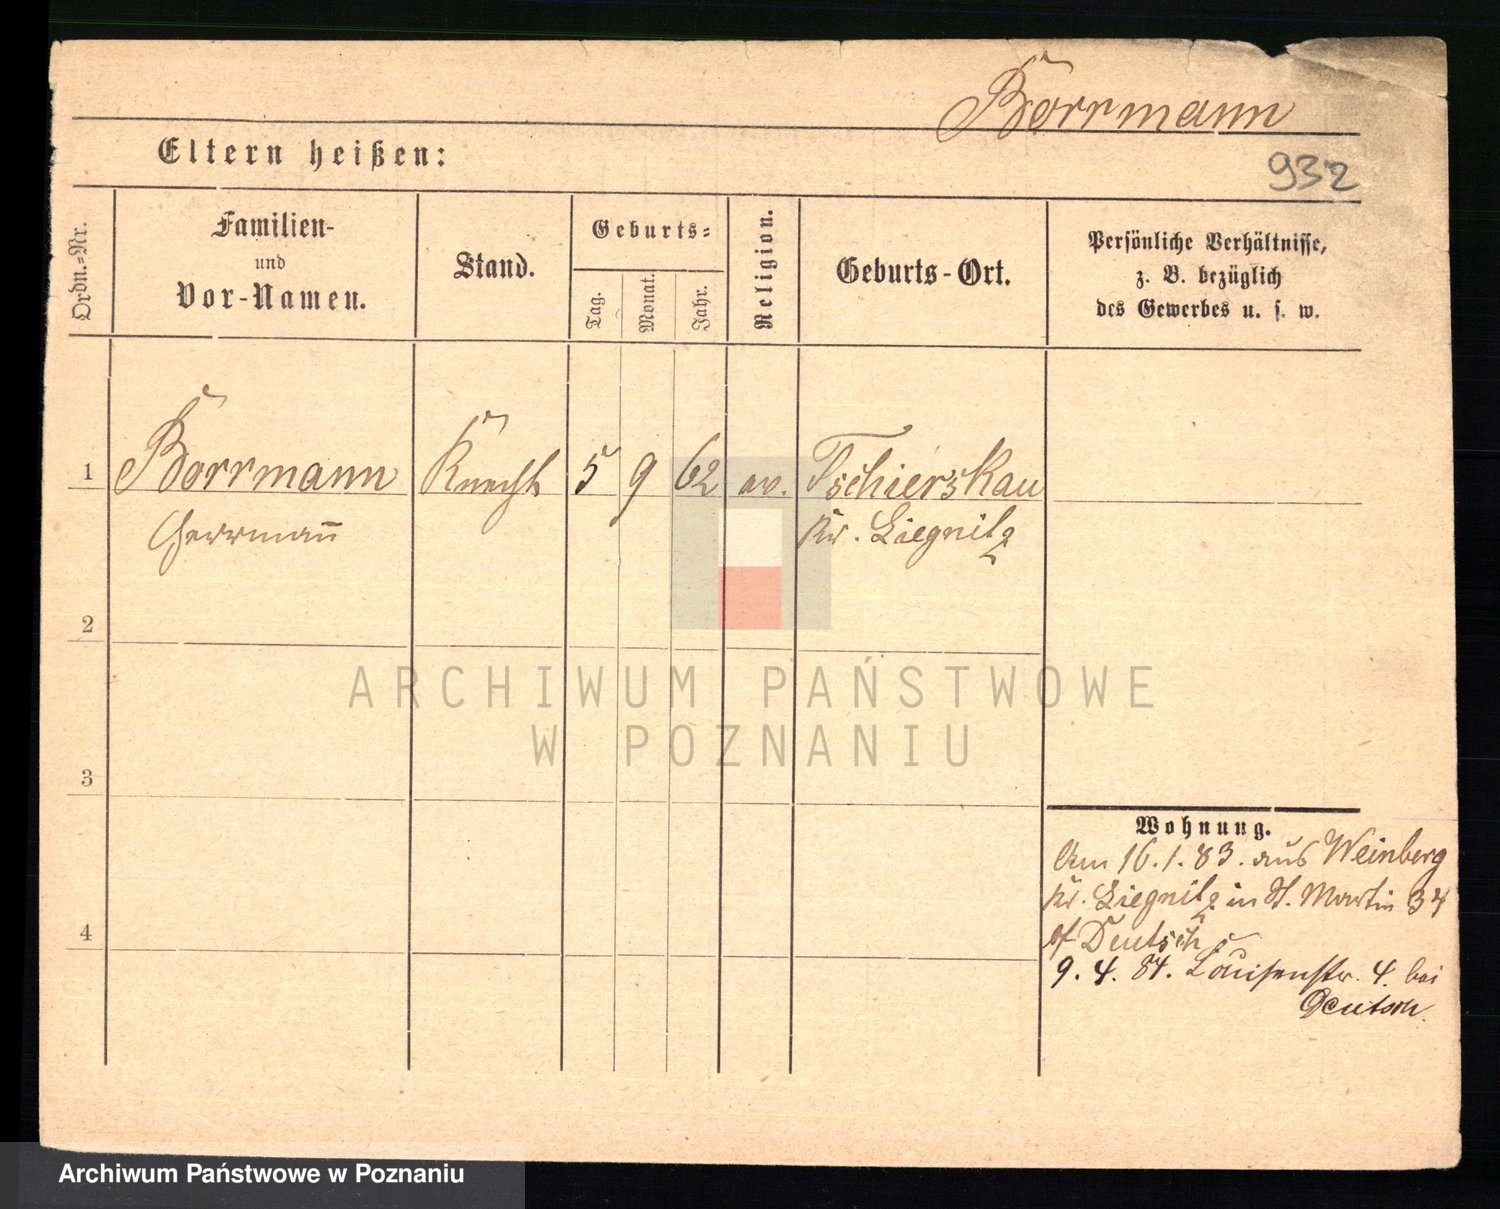 Borrmann
Eltern heißen:
932
Ordn.-Nr.
Familien-
und
Vor-Namen.
Stand.
Geburts-
Tag.
Monat.
Jahr.
Religion.
Geburts-Ort.
Persönliche Verhältnisse,
z. B. bezüglich
des Gewerbes u. s. w.
1 Borrmann Knecht 5 9 62 ev. Tschierskau
Herrmann̄ Kr. Liegnitz
2
ARCHIWUM PAŃSTWOWE
W POZNANIU
3
Wohnung.
Am 16.1.83. aus Weinberg
Kr. Liegnitz in St. Martin 34
Deutsch
4
9.4.84. Louisenstr. 4. bei
Deutsch.
Archiwum Państwowe w Poznaniu